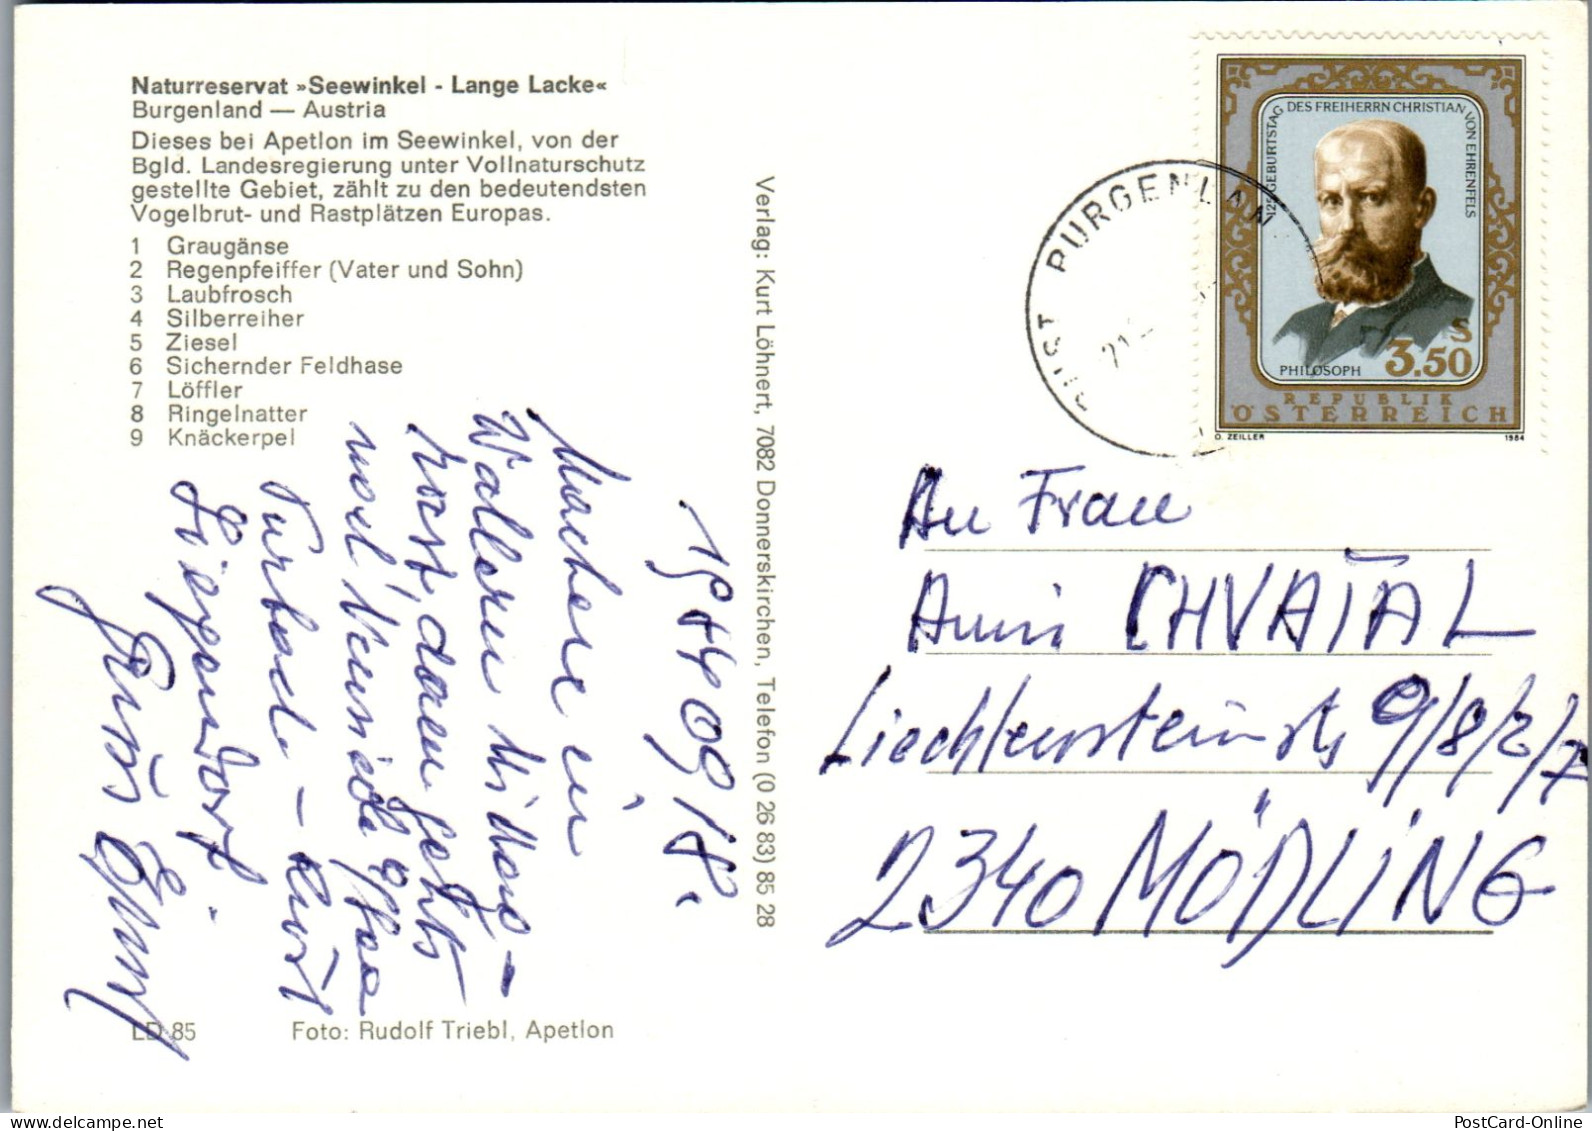 Naturreservat »Seewinkel - Lange Lacke«
Burgenland — Austria
Dieses bei Apetlon im Seewinkel, von der
Bgld. Landesregierung unter Vollnaturschutz
gestellte Gebiet, zählt zu den bedeutendsten
Vogelbrut- und Rastplätzen Europas.
1 Graugänse
2 Regenpfeiffer (Vater und Sohn)
3 Laubfrosch
4 Silberreiher
5 Ziesel
6 Sichernder Feldhase
7 Löffler
8 Ringelnatter
9 Knäckerpel
Mache in
Wallern
dann gehts
nach Neusiedl
LD 85 Foto: Rudolf Triebl, Apetlon
Verlag: Kurt Löhnert, 7082 Donnerskirchen, Telefon (0 26 83) 85 28
125. GEBURTSTAG DES FREIHERRN CHRISTIAN VON EHRENFELS
PHILOSOPH
S 3.50
REPUBLIK
ÖSTERREICH
O. ZEILLER 1984
An Frau
Anni CHVATAL
Liechtensteinstr 9/8/2/7
2340 MÖDLING
PostCard-Online